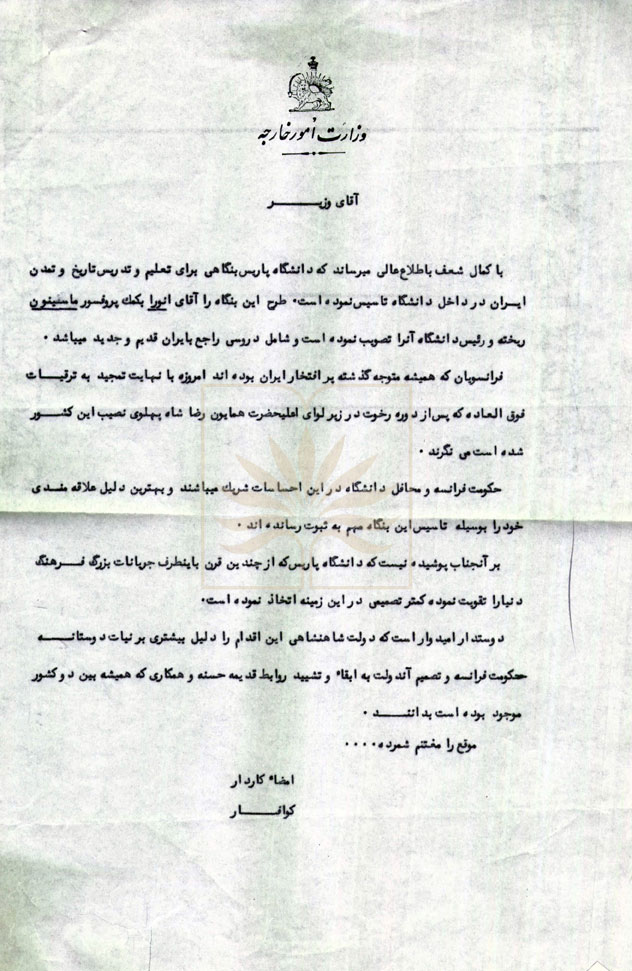 وزارت امور خارجه
آقای وزیر
با کمال شعف باطلاع عالی میرساند که دانشگاه پاریس بنگاهی برای تعلیم و تدریس تاریخ و تمدن
ایران در داخل دانشگاه تاسیس نموده است. طرح این بنگاه را آقای انورا بکمک پروفسور ماسینیون
ریخته و رئیس دانشگاه آنرا تصویب نموده است و شامل دروسی راجع بایران قدیم و جدید میباشد .
فرانسویان که همیشه متوجه گذشته پر افتخار ایران بوده اند امروزه با نهایت تمجید به ترقیات
فوق العاده که پس از دوره رخوت در زیر لوای اعلیحضرت همایون رضا شاه پهلوی نصیب این کشور
شده است می نگرند .
حکومت فرانسه و محافل دانشگاه در این احساسات شریک میباشند و بهترین دلیل علاقه مندی
خود را بوسیله تاسیس این بنگاه مهم به ثبوت رسانده اند .
بر آنجناب پوشیده نیست که دانشگاه پاریس که از چندین قرن باینطرف جریانات بزرگ فرهنگ
دنیا را تقویت نموده کمتر تصمیمی در این زمینه اتخاذ نموده است.
دوستدار امیدوار است که دولت شاهنشاهی این اقدام را دلیل بیشتری بر نیات دوستانه
حکومت فرانسه و تصمیم آندولت به ابقاء و تشیید روابط قدیمه حسنه و همکاری که همیشه بین دو کشور
موجود بوده است بدانند .
موقع را مغتنم شمرده ....
امضاء کاردار
کوافار